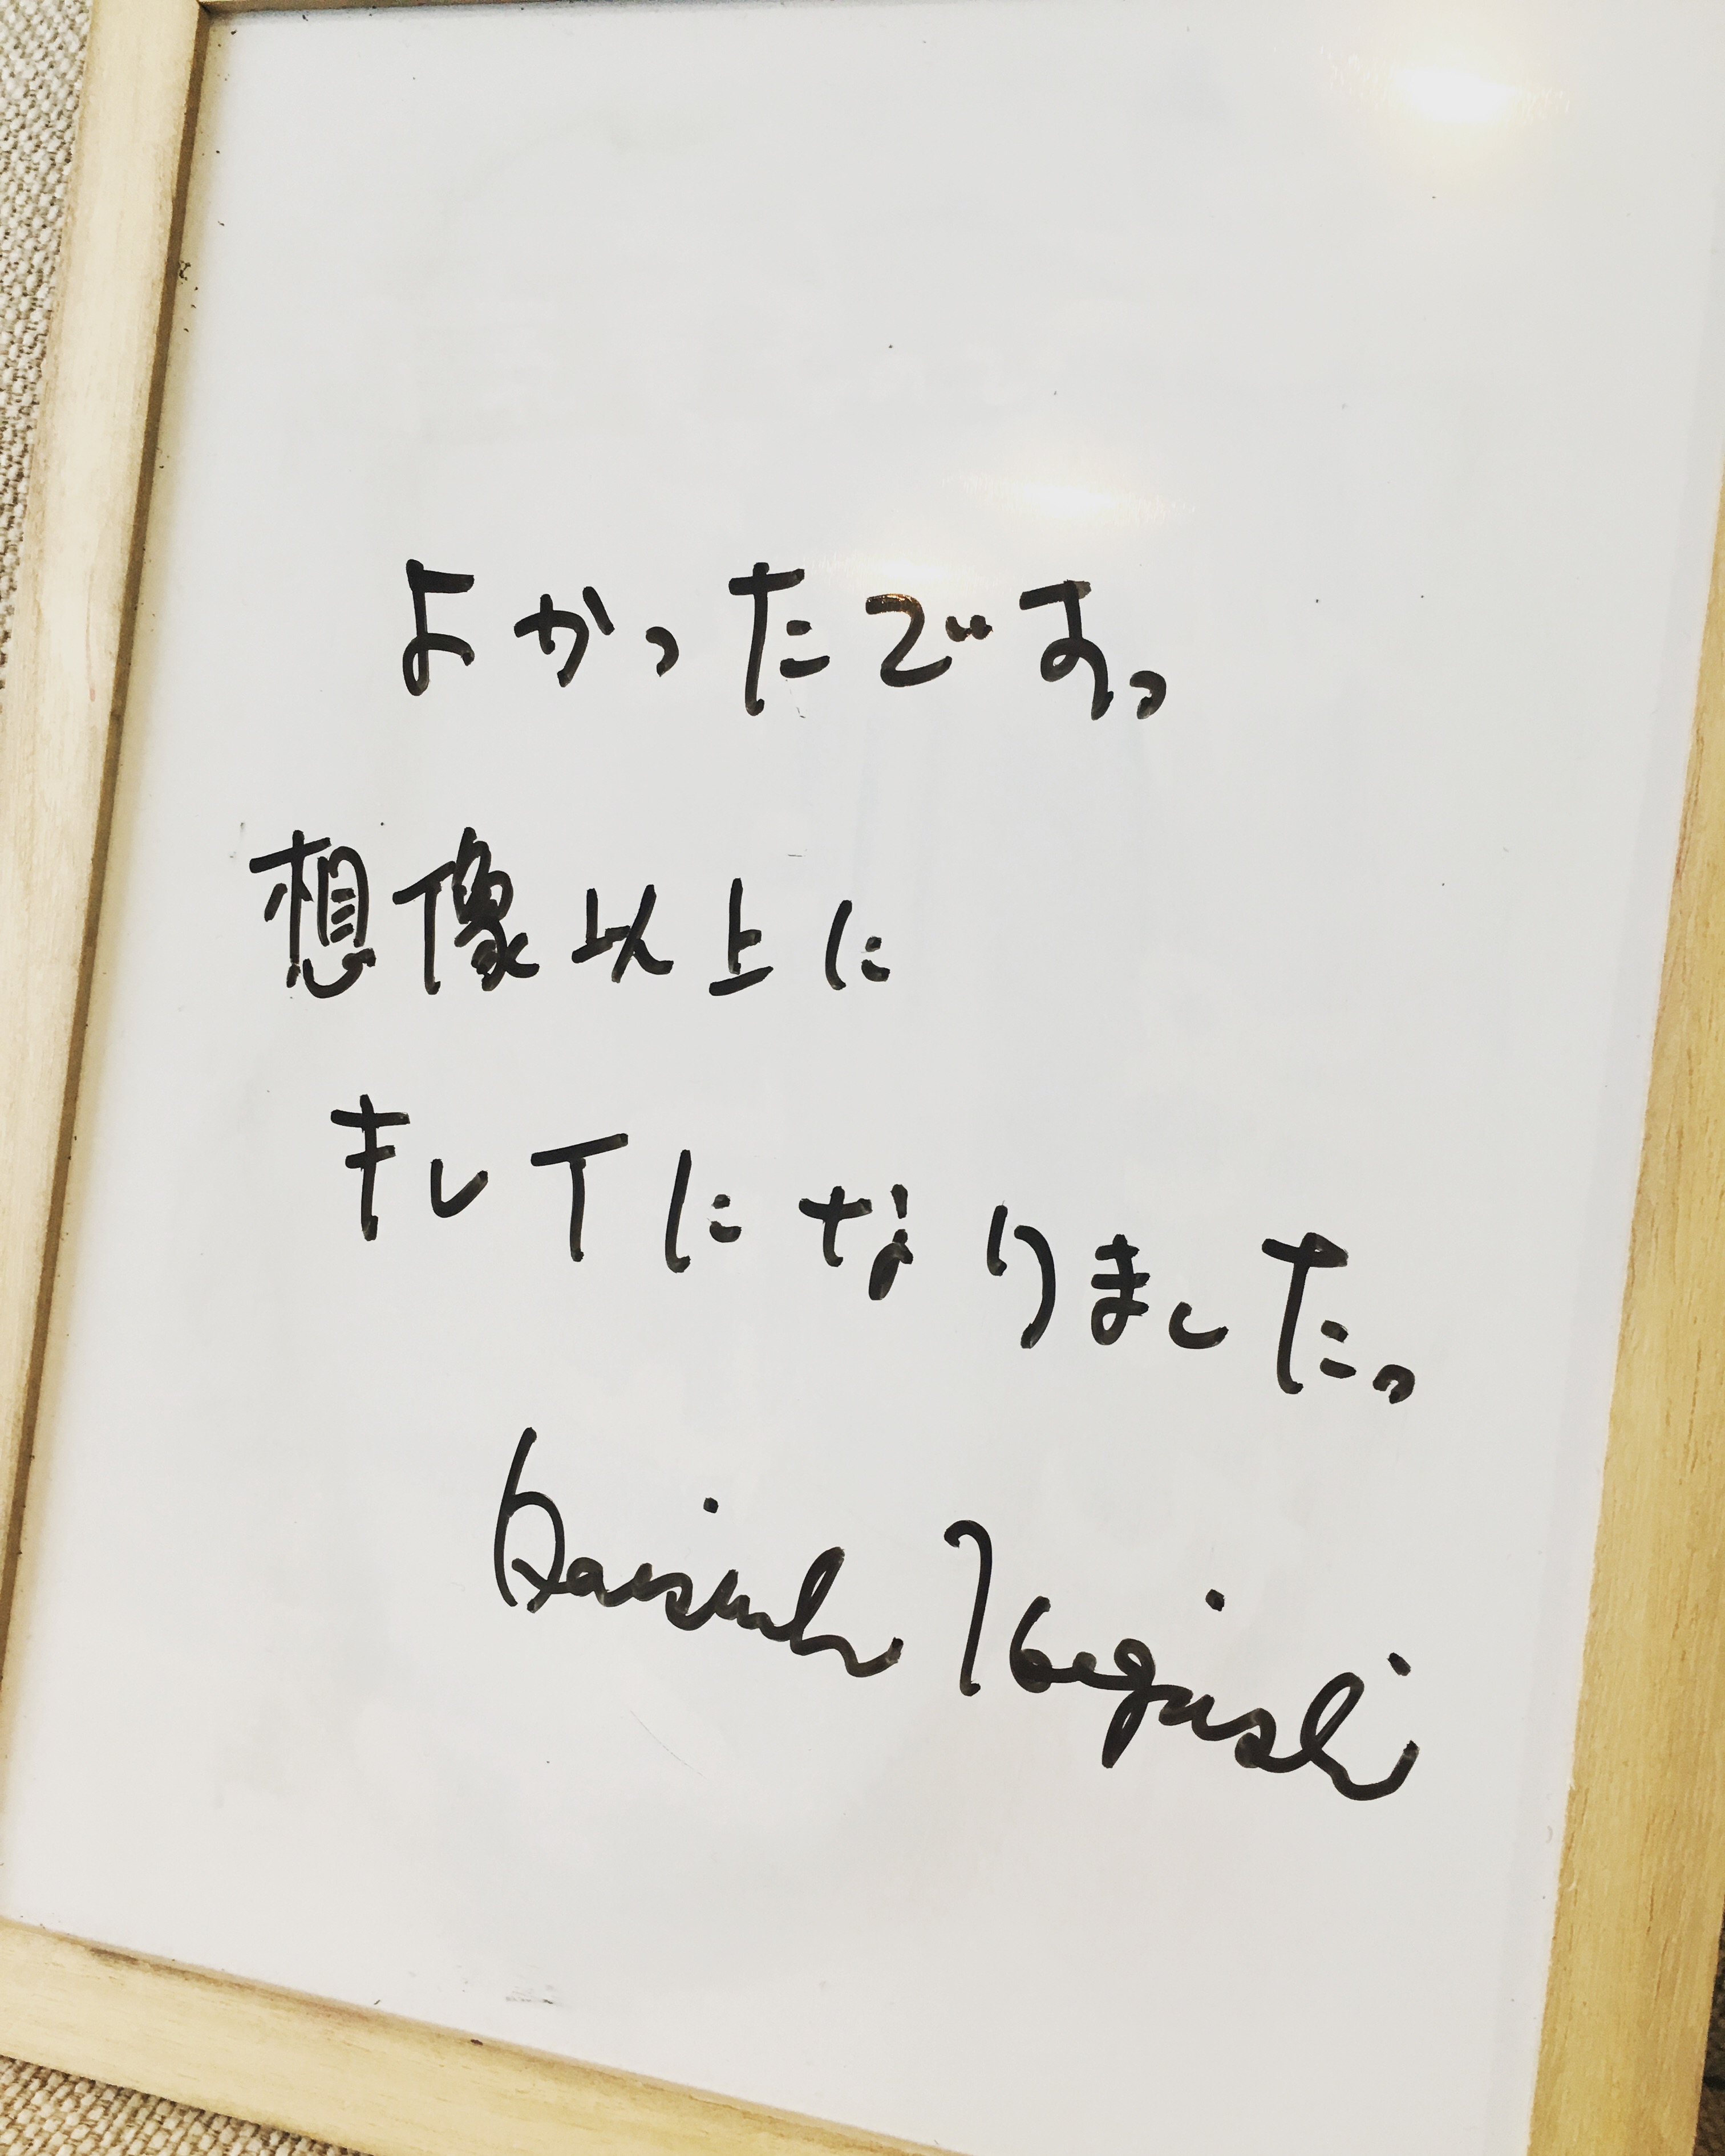 よかったです。
想像以上に
キレイになりました。